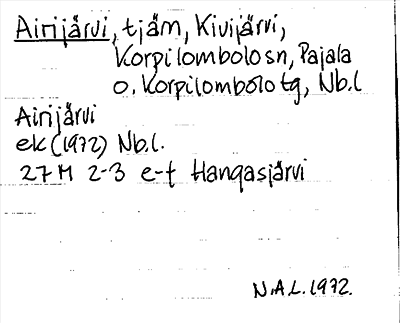 Airijärvi, tjäm, Kivijärvi,
Korpilombolo sn, Pajala
o. Korpilombolo tg, Nb.l
Airijärvi
ek (1972) Nb.l.
27 M 2-3 e-f Hangasjärvi
N.A.L. 1972.